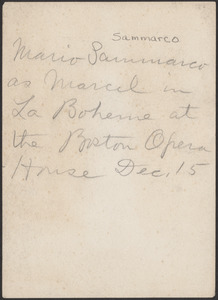 Sammarco
Mario Sammarco
as Marcel in
La Boheme at
the Boston Opera
House Dec. 15